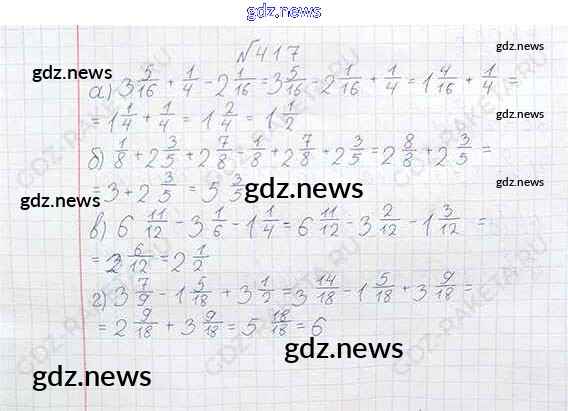 gdz.news
№417
gdz.news
gdz.news
а) 3 5/16 + 1/4 - 2 1/16 = 3 5/16 - 2 1/16 + 1/4 = 1 4/16 + 1/4 =
= 1 1/4 + 1/4 = 1 2/4 = 1 1/2
gdz.news
б) 1/8 + 2 3/5 + 2 7/8 = 1/8 + 2 7/8 + 2 3/5 = 2 8/8 + 2 3/5 =
= 3 + 2 3/5 = 5 3/5
gdz.news
gdz.news
gdz.news
в) 6 11/12 - 3 1/6 - 1 1/4 = 6 11/12 - 3 2/12 - 1 3/12 =
= 2 6/12 = 2 1/2
г) 3 7/9 - 1 5/18 + 3 1/2 = 3 14/18 - 1 5/18 + 3 9/18 =
= 2 9/18 + 3 9/18 = 5 18/18 = 6
gdz.news
gdz.news
GDZ-RAKETA.RU